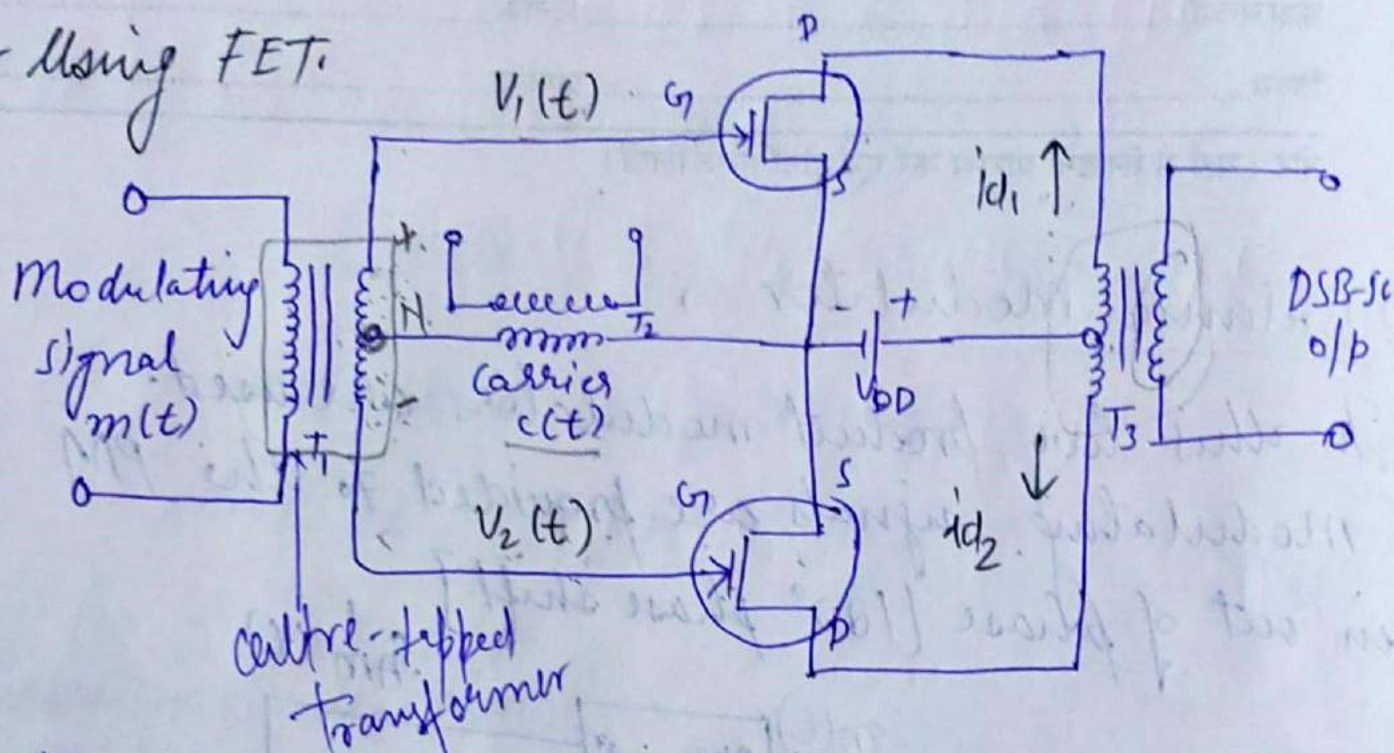 - Using FET.
D
V₁(t)
G
S
id₁ ↑
Modulating
signal
m(t)
+
N
-
T₁
T₂
carrier
c(t)
+
VDD
T₃
DSB-SC
o/p
V₂(t)
G
S
D
↓
id₂
centre-tapped
transformer